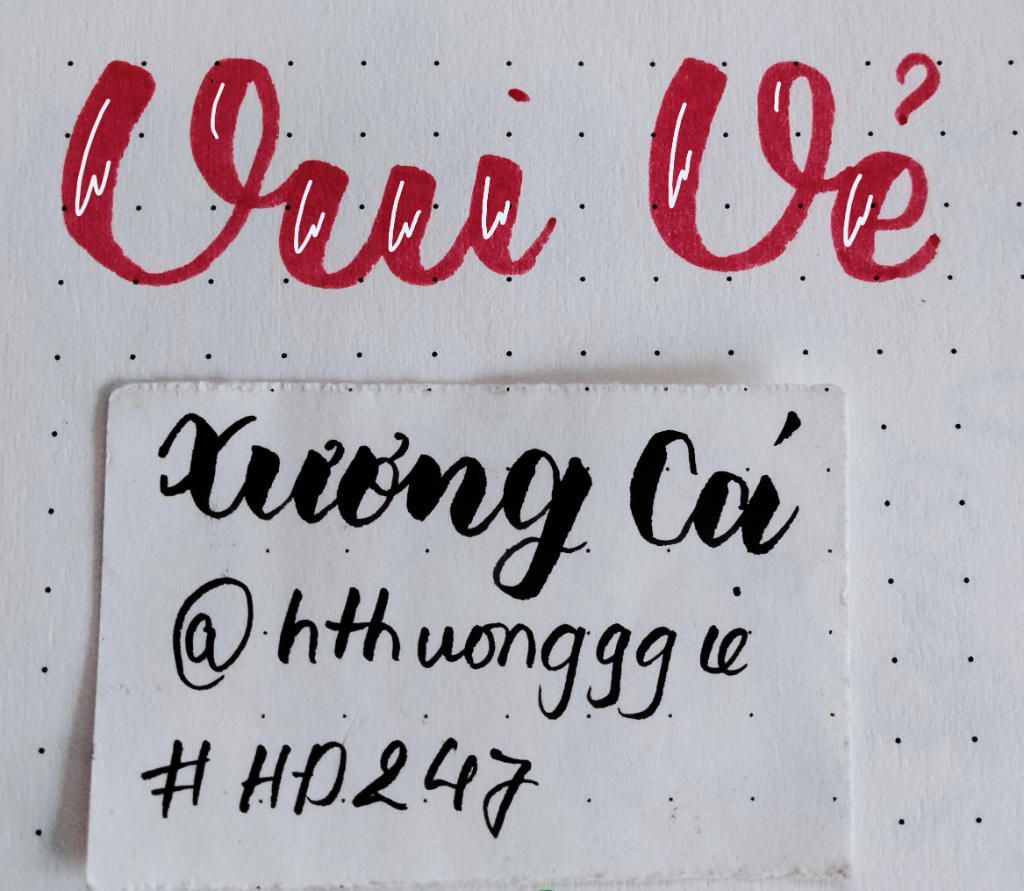 Vui Vẻ
Xương Cá
@hthuongggie
#HD247